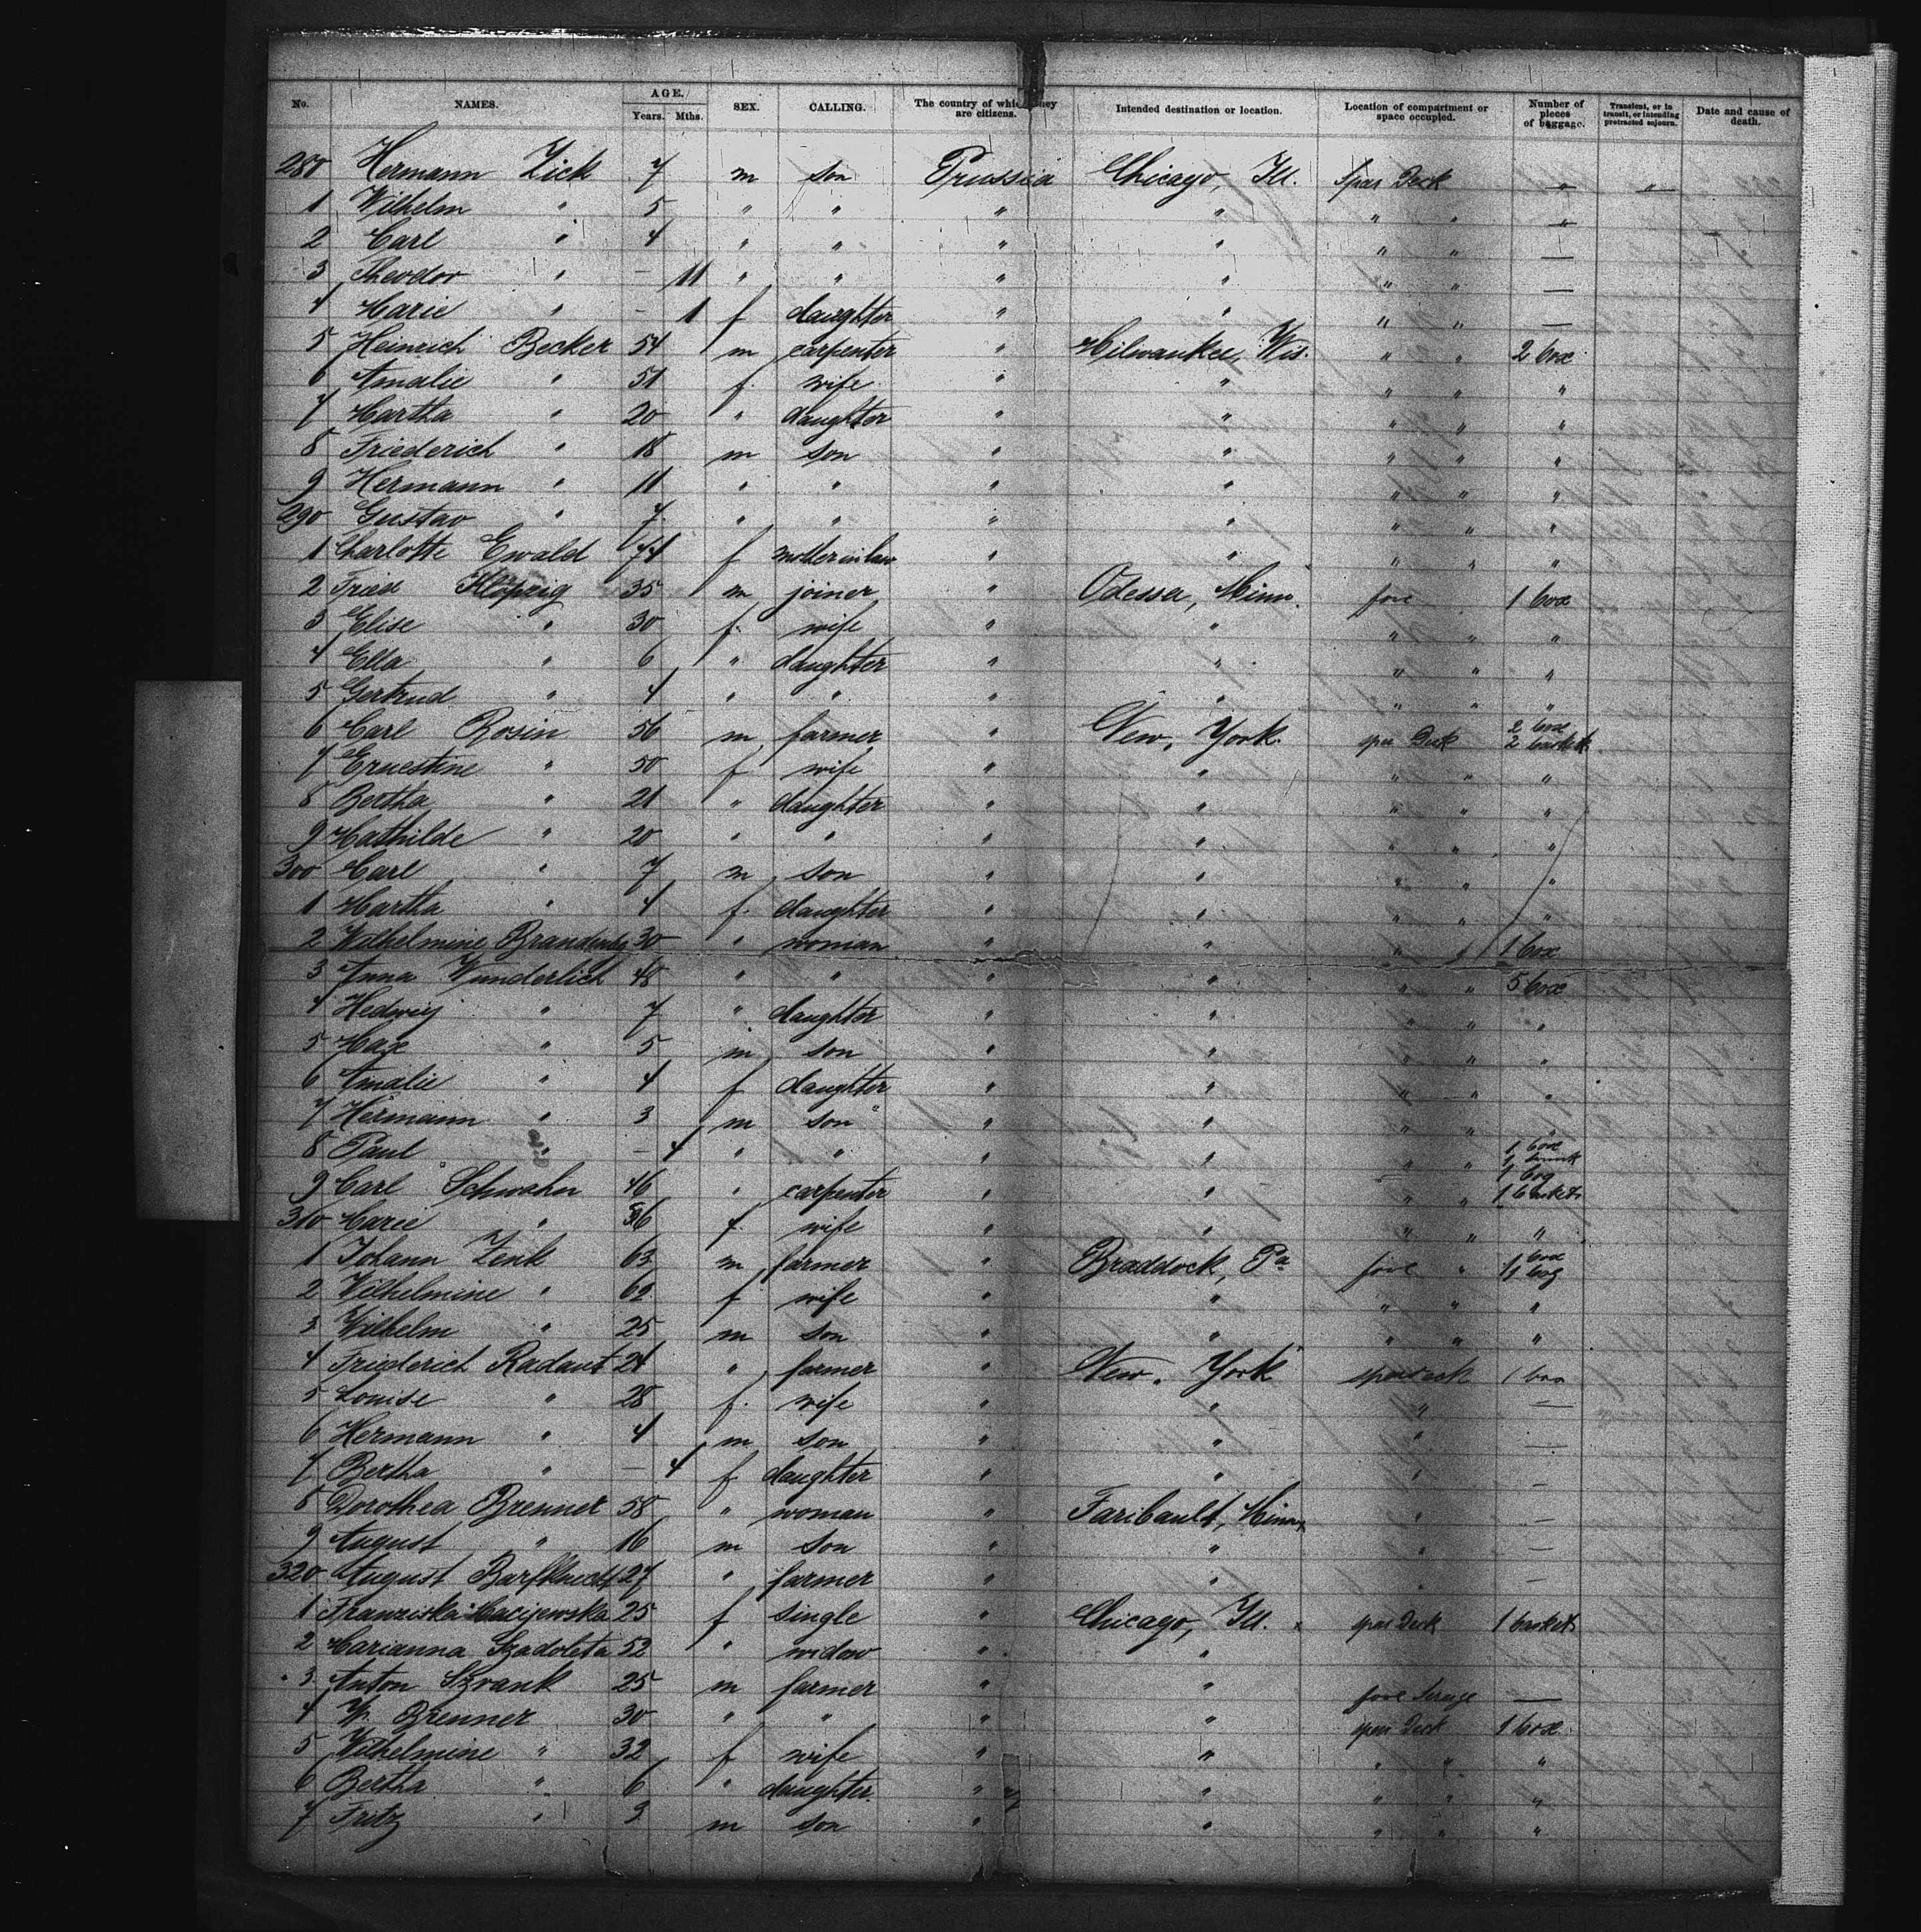 No. NAMES. AGE. Years. Mths. SEX. CALLING. The country of which they are citizens. Intended destination or location. Location of compartment or space occupied. Number of pieces of baggage. Transient, or in transit, or intending protracted sojourn. Date and cause of death.
280 Hermann Zick 7 m son Prussia Chicago, Ill. Spar Deck — "
1 Wilhelm " 5 " " " " " " —
2 Carl " 4 " " " " " " —
3 Theodor " – 11 " " " " " " —
4 Marie " – 1 f daughter " " " " —
5 Heinrich Becker 54 m carpenter " Milwaukee, Wis. " " 2 box
6 Amalie " 51 f wife " " " " "
7 Martha " 20 " daughter " " " " "
8 Friederich " 18 m son " " " " "
9 Hermann " 11 " " " " " " "
290 Gustav " 7 " " " " " " "
1 Charlotte Ewald 74 f mother in law " " " " "
2 Fried 35 m joiner " Odessa, Minn. fore " 1 box
3 Elise " 30 f wife " " " " "
4 Ella " 6 " daughter " " " " "
5 Gertrud " 4 " " " " " " "
6 Carl Rosin 56 m farmer " New York spar Deck 2 box 2 baskets
7 Ernestine " 50 f wife " " " " "
8 Bertha " 21 " daughter " " " " "
9 Mathilde " 20 " " " " " " "
300 Carl " 7 m son " " " " "
1 Martha " 4 f daughter " " " " "
2 Wilhelmine Brandenbg 30 " woman " " " " 1 box
3 Anna Wunderlich 48 " " " " " " 5 box
4 Hedwig " 7 " daughter " " " " "
5 Max " 5 m son " " " " "
6 Amalie " 4 f daughter " " " " "
7 Hermann " 3 m son " " " " " "
8 Paul " – 4 " " " " " "
9 Carl Schwahn 46 " carpenter " " " " 1 box 1 trunk 1 bag 1 baskets
310 Marie " 36 f wife " " " " "
1 Johann Zenk 63 m farmer " Braddock, Pa fore " 1 box 1 bag
2 Wilhelmine " 62 f wife " " " " "
3 Wilhelm " 25 m son " " " " "
4 Friederich Radant 24 " farmer " New York spardeck 1 box
5 Louise " 28 f wife " " " —
6 Hermann " 4 m son " " " —
7 Bertha " – 4 f daughter " " " –
8 Dorothea Brenner 58 " woman " Faribault, Minn " –
9 August " 16 m son " " " –
320 August Barfknecht 27 " farmer " " " –
1 Franziska Macijewska 25 f single " Chicago, Ill. spar Deck 1 baskets
2 Marianna Szadoleta 52 " widow " "
3 Anton Skrank 25 m farmer " " fore Sterage —
4 W. Brenner 30 " " " " spar Deck 1 box
5 Wilhelmine " 32 f wife " " " " "
6 Bertha " 6 " daughter " " " " "
7 Fritz " 3 m son " " " " "